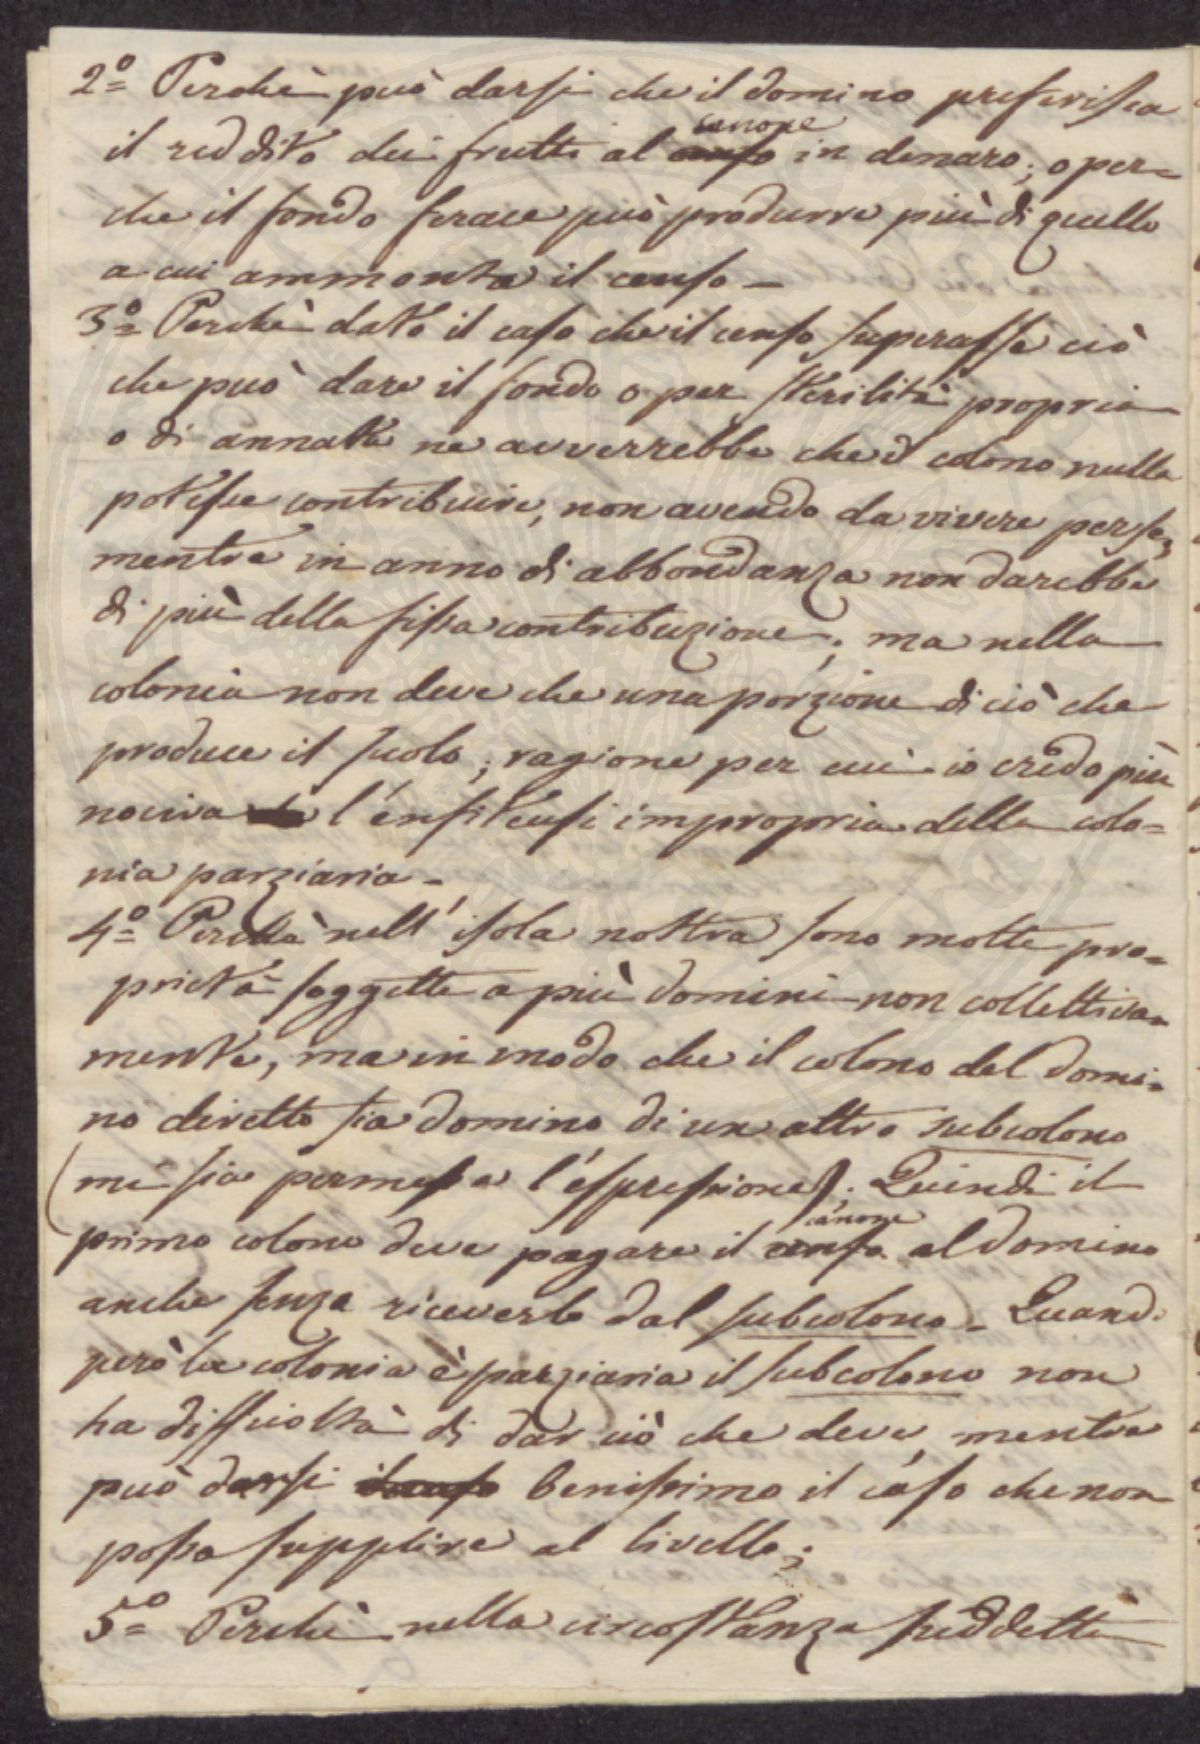 2º Perchè può darsi che il domino preferisca
il reddito dei frutti al censo canone in denaro; o per=
che il fondo ferace può produrre più di quello
a cui ammonta il censo –
3º Perchè dato il caso che il censo superasse ciò
che può dare il fondo o per sterilità propria
o di annata ne avverrebbe che il colono nulla
potesse contribuire, non avendo da vivere per se,
mentre in anno di abbondanza non darebbe
di più della fissa contribuzione; ma nella
colonia non deve che una porzione di ciò che
produce il suolo; ragione per cui io credo più
nociva l'enfiteusi impropria della colo=
nia parziaria –
4º Perchè nell'isola nostra sono molte pro=
prietà soggette a più domini non collettiva=
mente, ma in modo che il colono del domi=
no diretto sia domino di un altro subcolono
(mi sia permessa l'espressione). Quindi il
primo colono deve pagare il censo canone al domino
anche senza riceverlo dal subcolono – Quando
però la colonia è parziaria il subcolono non
ha difficoltà di dar ciò che deve, mentre
può darsi il censo benissimo il caso che non
possa supplire al livello;
5º Perchè nella circostanza suddetta